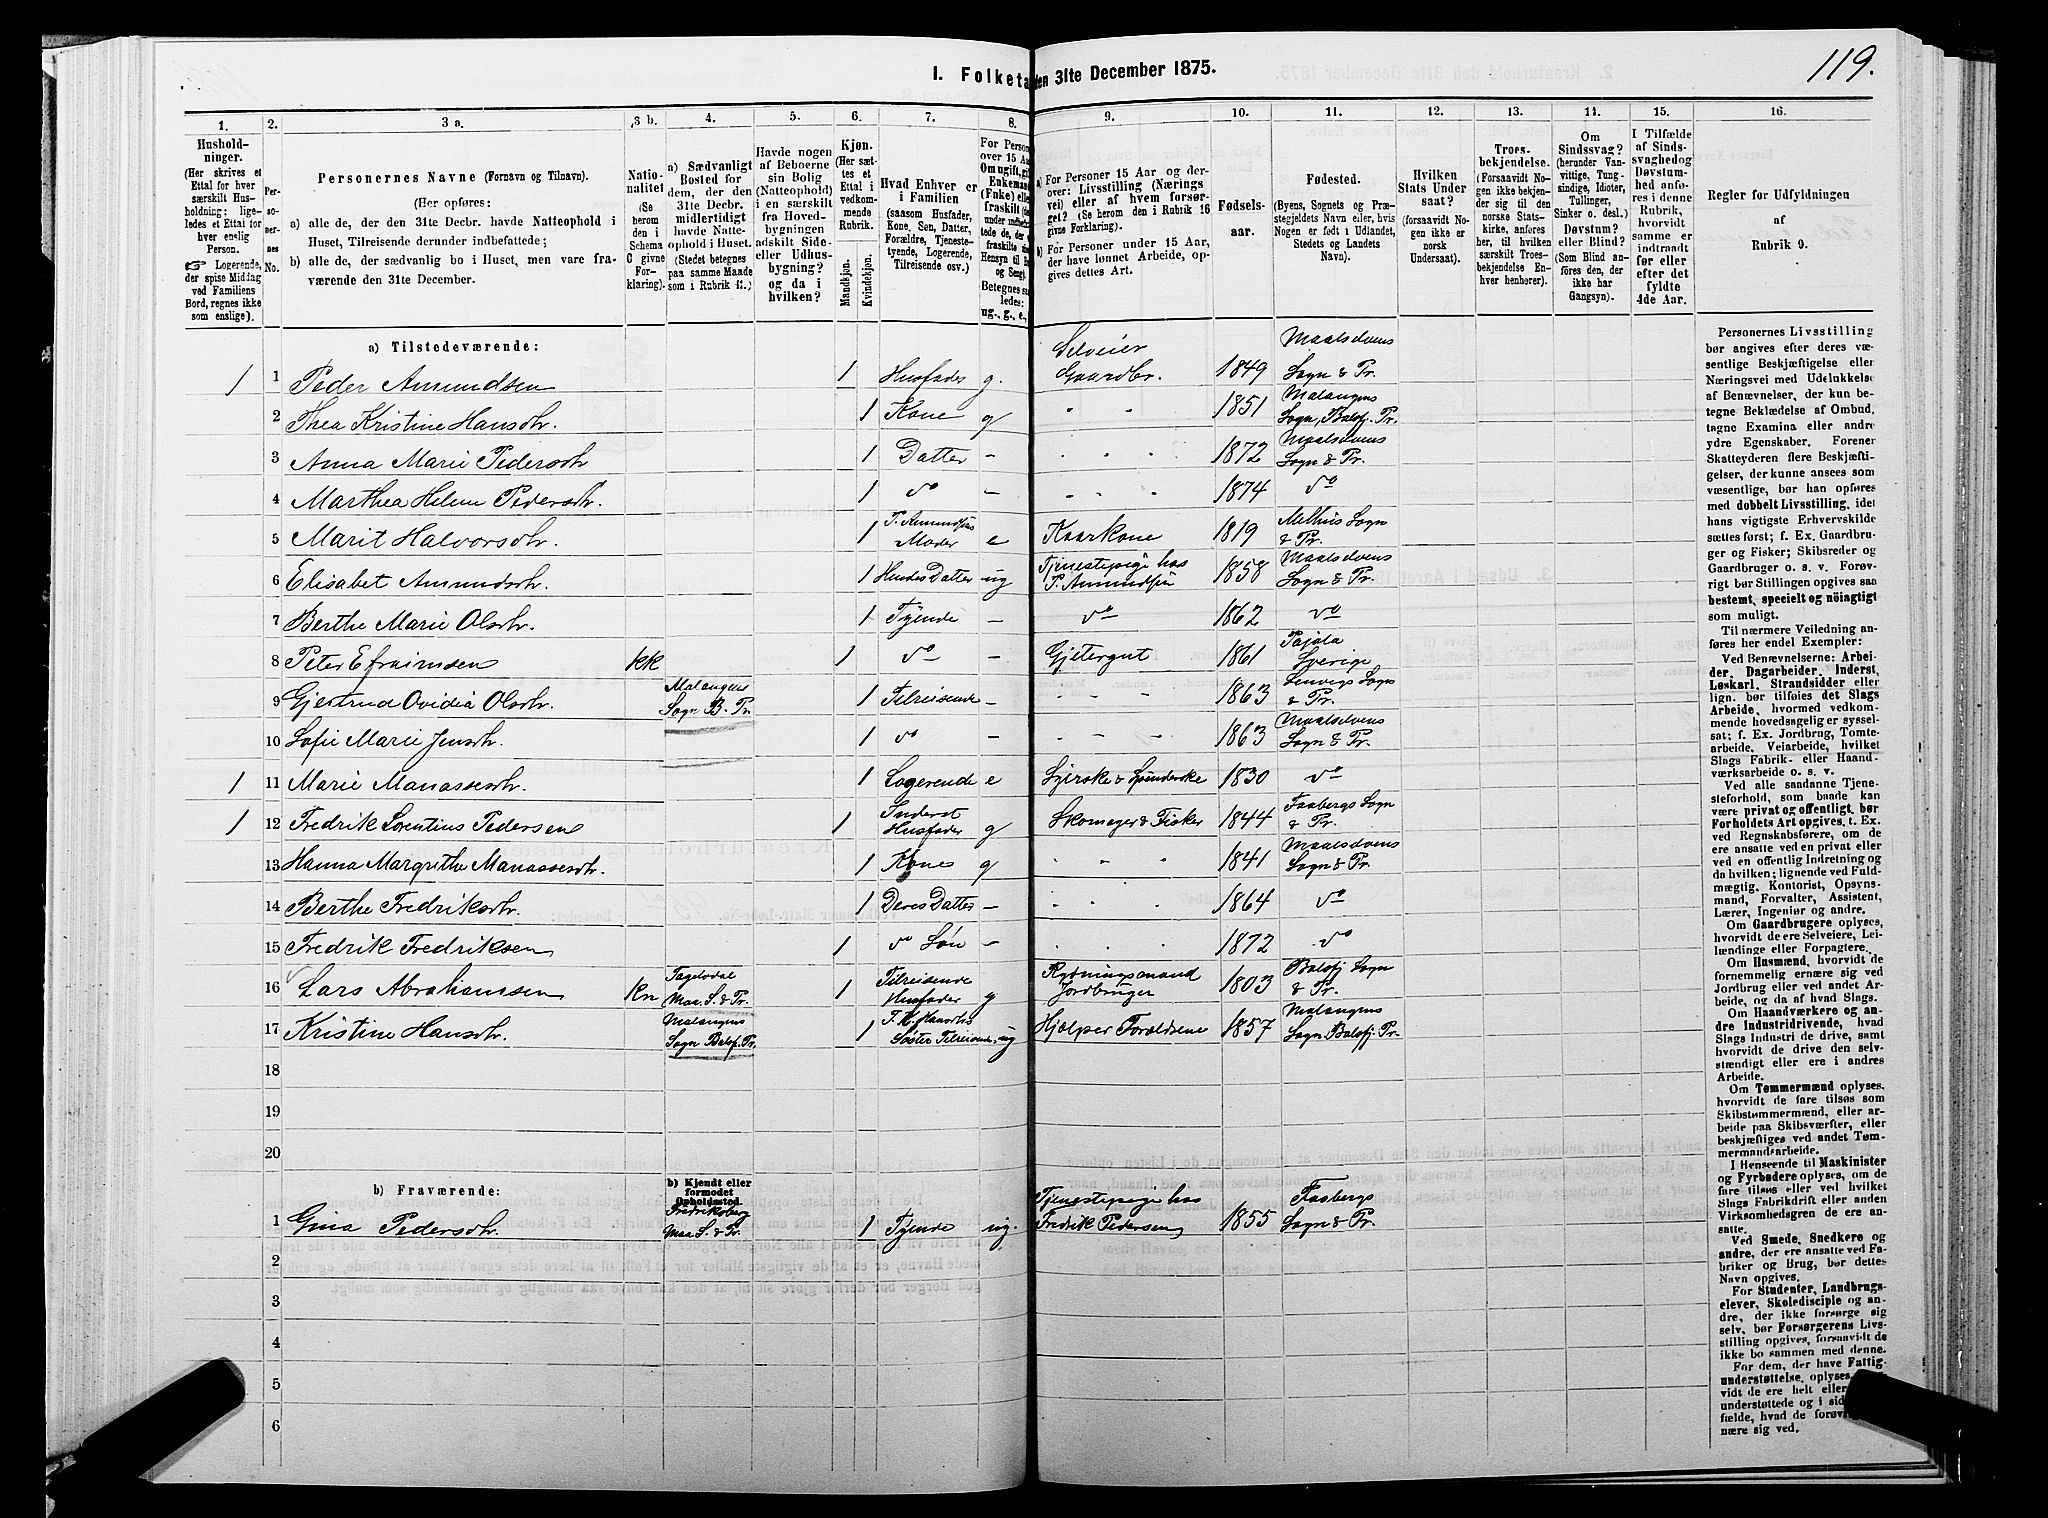 119.
I. Folketa den 31te December 1875.
1. 2. 3 a. 3 b. 4. 5. 6. 7. 8. 9. 10. 11. 12. 13. 14. 15. 16.
Hushold-
ninger.
(Her skrives et
Ettal for hver
særskilt Hus-
holdning; lige-
ledes et Ettal
for hver
enslig
Person.
☞ Logerende,
der spise Middag
ved Familiens
Bord, regnes ikke
som enslige).
Per-
so-
ner-
nes
No.
Personernes Navne (Fornavn og Tilnavn).
(Her opføres:
a) alle de, der den 31te Decbr. havde Natteophold i
Huset, Tilreisende derunder indbefattede;
b) alle de, der sædvanlig bo i Huset, men vare fra-
værende den 31te December.
Natio-
nalitet
(Se
herom
den i
Schema
C givne
For-
klaring).
a) Sædvanligt
Bosted for
dem, der den
31te Decbr.
midlertidigt
havde Natte-
ophold i Huset.
(Stedet betegnes
paa samme Maade
som i Rubrik 11.)
Havde nogen
af Beboerne
sin Bolig
(Natteophold)
i en særskilt
fra Hoved-
bygningen
adskilt Side-
eller Udhus-
bygning?
og da i
hvilken?
Kjøn.
(Her sæt-
tes et
Ettal i
vedkom-
mende
Rubrik.
Mandkjøn.
Kvindekjøn.
Hvad Enhver er
i Familien
(saasom Husfader,
Kone, Søn, Datter,
Forældre, Tjeneste-
tyende, Logerende,
Tilreisende osv.)
For Person
over 15 Aar
Om ugift, gi
Enkemand
(Enke) eller
fraskilt (se
under indbefat-
tede de, de
fraskilte
Hensyn til Bo
og Seng).
Betegnes saa-
ledes:
ug., g., e.,
a) For Personer 15 Aar og der-
over: Livsstilling (Nærings
vei) eller af hvem forsør-
get? (Se herom den i Rubrik 16
givne Forklaring).
b) For Personer under 15 Aar,
der have lønnet Arbeide, op-
gives dettes Art.
Fødsels-
aar.
Fødested.
(Byens, Sognets og Præ-
stegjeldets Navn eller, hvis
Nogen er født i Udlandet,
Stedets og Landets
Navn).
Hvilken
Stats Under
saat?
(forsaavidt No-
gen ikke er
norsk
Undersaat).
Troes-
bekjendelse.
(Forsaavidt No-
gen ikke bekjen-
der sig til den
norske Stats-
kirke, anføres
her, til hvilken
særskilt Troes-
bekjendelse En-
hver henhører).
Om
Sindssvag?
(herunder Van-
vittige, Tung-
sindige, Idioter,
Tullinger,
Sinker o. desl.)
Døvstum?
eller Blind?
(Som Blind an-
føres den, der
ikke har
Gangsyn).
I Tilfælde
af Sinds-
svaghed og
Døvstum-
hed anfø-
res i denne
Rubrik,
hvorvidt
samme er
indtraadt
før eller
efter det
fyldte
4de Aar.
Regler for Udfyldningen
af
Rubrik 9.
a) Tilstedeværende:
1 1 Peder Amundsen 1 Husfader g. Selveier Gaardbr. 1849 Maalselvens Sogn & Pr.
2 Thea Kristine Hansdtr. 1 Kone g " " 1851 Malangens Sogn, Balsfj. Pr.
3 Anna Marie Pedersdtr 1 Datter - " " " 1872 Maalselvens Sogn & Pr.
4 Marthea Helene Pedersdtr. 1 do - " " " 1874 do
5 Marit Halvorsdtr. 1 P. Amundsens Moder e Kaarkone 1819 Melhus Sogn & Pr.
6 Elisabet Amundsdtr. 1 Hendes Datter ug Tjenestepige hos P. Amundsen 1858 Maalselvens Sogn & Pr.
7 Berthe Marie Olsdtr. 1 Tyende - do 1862 do
8 Peter Efraimsen kk 1 do - Gjetergut 1861 Pajala Sverige
9 Gjertrud Ovidia Olsdtr. Malangens Sogn B. Pr. 1 Tilreisende - - - - 1863 Lenvigs Sogn & Pr.
10 Sofie Marie Jensdtr. 1 do - - - - 1863 Maalselvens Sogn & Pr.
1 11 Marie Manassesdtr. 1 Logerende e Syerske & Spinderske 1830 do
1 12 Fredrik Lorentius Pedersen 1 Inderst Husfader g Skomager & Fisker 1844 Faabergs Sogn & Pr.
13 Hanna Margrethe Manassesdtr. 1 Kone g " " " 1841 Maalselvens Sogn & Pr.
14 Berthe Fredriksdtr. 1 Deres Datter - " " " 1864 do
15 Fredrik Fredriksen 1 do Søn - " " " 1872 do
16 Lars Abrahamsen kn Fagelvdal Maa. S. & Pr. 1 Tilreisende Husfader g Rydningsmand Jordbruger 1803 Balsfj. Sogn & Pr.
17 Kristine Hansdtr. Malangens Sogn Balsf. Pr. 1 T. K. Hansdtrs Søster Tilreisende ug Hjelper Foreldrene 1857 Malangens Sogn. Balsfj. Pr.
18
19
20
b) Fraværende:
b) Kjendt eller
formodet
Opholdssted.
1 Gina Pedersdtr. Fredriksberg Maa. S. & Pr. 1 Tyende ug. Tjenestepige hos Fredrik Pedersen 1855 Faabergs Sogn & Pr.
2
3
4
5
6
Personernes Livsstilling
bør angives efter deres væ-
sentlige Beskjæftigelse eller
Næringsvei med Udelukkelse
af Benævnelser, der kun be-
tegne Beklædelse af Ombud,
tagne Examina eller andre
ydre Egenskaber. Forener
Skatteyderen flere Beskjæfti-
gelser, der kunne ansees som
væsentlige, bør han opføres
med dobbelt Livsstilling, idet
hans vigtigste Erhvervskilde
sættes først; f. Ex. Gaardbru-
ger og Fisker; Skibsreder og
Gaardbruger o. s. v. Forøv-
rigt bør Stillingen opgives saa
bestemt, specielt og nöiagtigt
som muligt.
Til nærmere Veiledning an-
føres her endel Exempler:
Ved Benævnelserne: Arbei-
der, Dagarbeider, Inderst,
Løskarl, Strandsidder eller
lign. bør tilføies det Slags
Arbeide, hvormed vedkom-
mende hovedsagelig er syssel-
sat; f. Ex. Jordbrug, Tomte-
arbeide, Veiarbeide, hvilket
Slags Fabrik- eller Haand-
værksarbeide o. s. v.
Ved alle saadanne Tjene-
steforhold, som baade kan
være privat og offentligt, bør
Forholdets Art opgives, f. Ex.
ved Regnskabsførere, om de
ere ansatte ved en privat eller
ved en offentlig Indretning og
da hvilken; lignende ved Fuld-
mægtig, Kontorist, Opsyns-
mand, Forvalter, Assistent,
Lærer, Ingeniør og andre.
Om Gaardbrugere oplyses,
hvorvidt de ere Selveiere, Lei-
lændinge eller Forpagtere.
Om Husmænd, hvorvidt de
fornemmelig ernære sig ved
Jordbrug eller ved andet Ar-
beide, og da af hvad Slags.
Om Haandværkere og an-
dre Industridrivende, hvad
Slags Industri de drive, samt
hvorvidt de drive den selv-
stændigt eller ere i andres
Arbeide.
Om Tømmermænd oplyses,
hvorvidt de fare tilsøs som
Skibstømmermænd, eller ar-
beide paa Skibsværfter, eller
beskjæftiges ved andet Tøm-
mermandsarbeide.
I Henseende til Maskinister
og Fyrbødere oplyses, om de
fare tilsøs eller ved hvilket
Slags Fabrikdrift eller anden
Virksomhedsgren de ere an-
satte.
Ved Smede, Snedkere og
andre, der ere ansatte ved Fa-
briker og Brug, bør dettes
Navn opgives.
For Studenter, Landbrugs-
elever, Skoledisciple og an-
dre, der ikke forsørge sig
selv, bør Forsørgerens Livs-
stilling opgives, forsaavidt de
ikke bo sammen med denne.
For dem, der have Fattig-
understøttelse, oplyses,
vidt de ere helt eller
understøttede og i sid
fælde, hvad de forøv
nære sig ved.